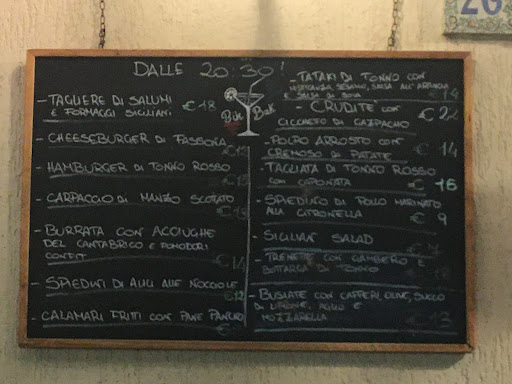 26
DALLE 20:30!
- TAGLIERE DI SALUMI
E FORMAGGI SICILIANI € 18
- CHEESEBURGER DI FASSONA
€
- HAMBURGER DI TONNO ROSSO
€
- CARPACCIO DI MANZO SCOTTATO
€
- BURRATA CON ACCIUGHE
DEL CANTABRICO E POMODORI
CONFIT
€ 14
- SPIEDINI DI ALICI ALLE NOCCIOLE
€ 12
- CALAMARI FRITTI CON PANE PANCHO
€
Bar
- TATAKI DI TONNO CON
SESAMO, SALSA ALL'ARANCIA
E SALSA DI SOIA € 14
- CRUDITÈ CON € 22
CICCHETTO DI GAZPACHO
- POLPO ARROSTO CON
CREMOSO DI PATATE € 14
- TAGLIATA DI TONNO ROSSO
CON CAPONATA € 16
- SPIEDINO DI POLLO MARINATO
ALLA CITRONELLA € 9
- SICILIAN SALAD
€
- TRENETTE CON GAMBERO E
BOTTARGA DI TONNO
€
- BUSIATE CON CAPPERI, OLIVE, SUCCO
DI LIMONE, AGLIO E
MOZZARELLA € 13